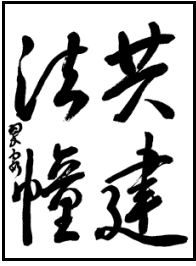 共建
法幢